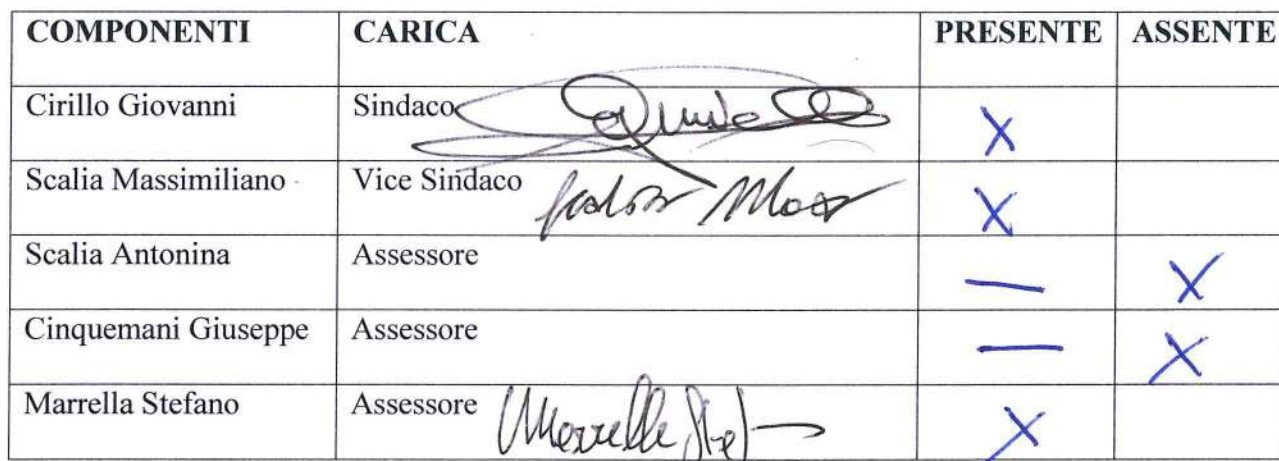 COMPONENTI CARICA PRESENTE ASSENTE
Cirillo Giovanni Sindaco X
Scalia Massimiliano Vice Sindaco X
Scalia Antonina Assessore — X
Cinquemani Giuseppe Assessore — X
Marrella Stefano Assessore X